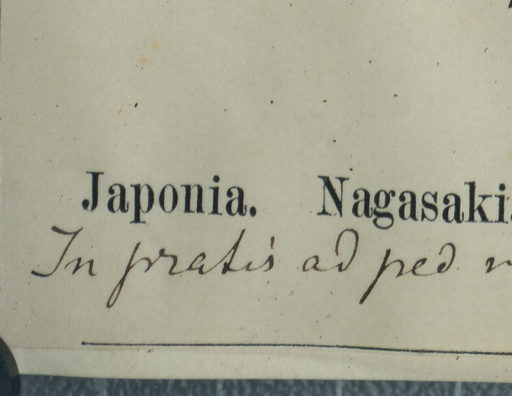 Japonia. Nagasaki.
In pratis ad ped